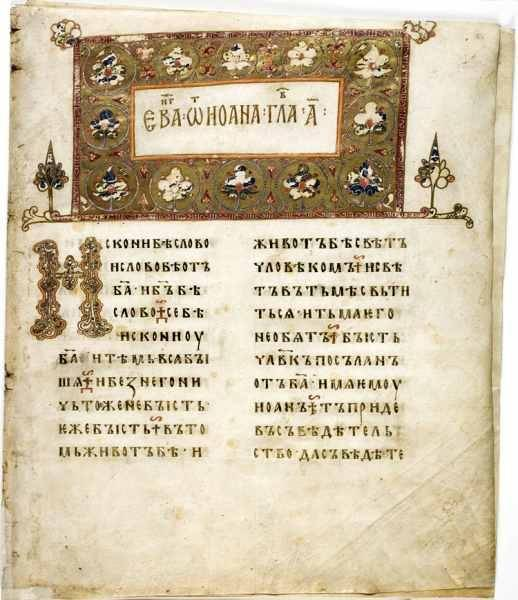 ЕВА҃ · ѾИОАНА · ГЛА҃ · А҃ :
ИСКОНИБѢСЛОВО
ИСЛОВОБѢОТЪ
БА҃ · ИБ҃ЪБѢ
СЛОВО · СЕБѢ
ИСКОНИОУ
БА҃ИТѢМЬВЬСАБЫ
ШѦ · ИБЕЗНЕГОНИ
ЧЬТОЖЕНЕБЫСТЬ ·
ЕЖЕБЫСТЬ · ВЪТО
МЬЖИВОТЪБѢ · И
ЖИВОТЪБѢСВѢТЪ
ЧЛОВѢКОМЪ · ИСВѢ
ТЪВЪТЬМѢСВЬТИ
ТЬСѦ · ИТЬМАѤГО
НЕОБѦТЪ · БЫСТЬ
ЧЛ҃ВКЪПОСЪЛАНЪ
ОТЪБА҃ · ИМѦѤМОУ
ИОАНЪ · ТЪПРИДЕ
ВЪСЪВѢДѢТЕЛЬ
СТВО · ДАСЪВѢДѢТЕ